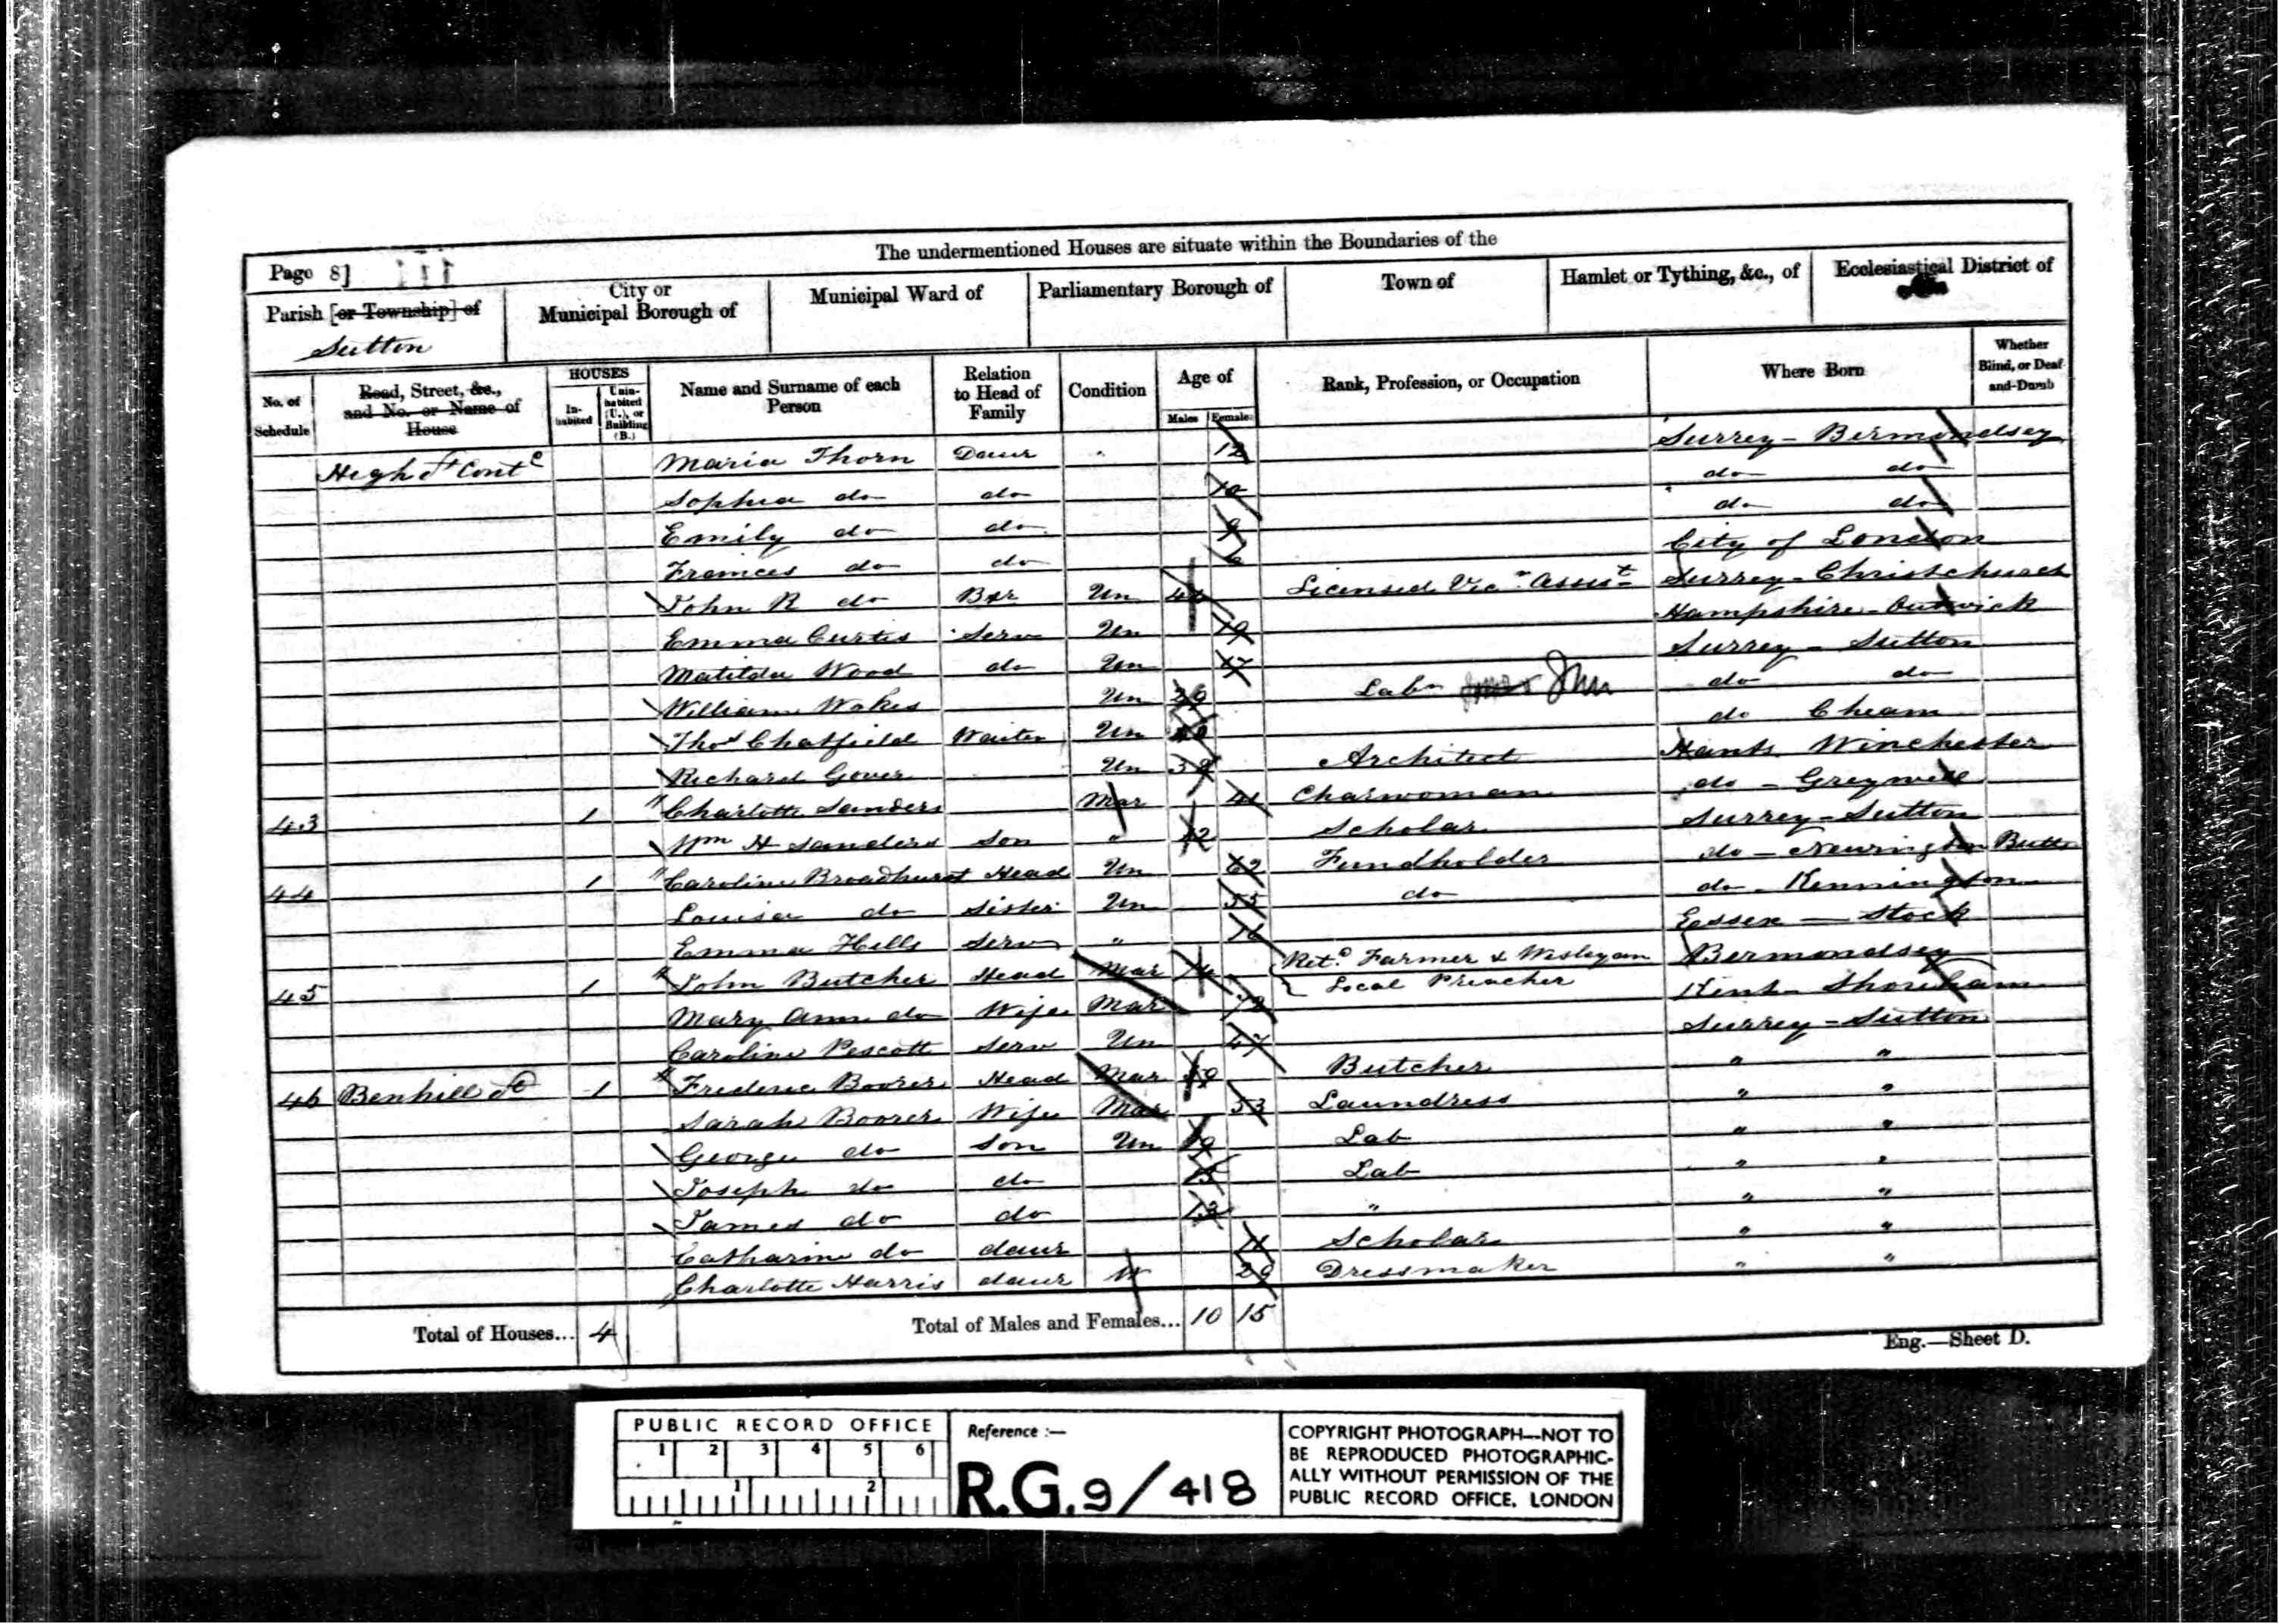 The undermentioned Houses are situate within the Boundaries of the
Page 8]
Parish [or Township] of
Sutton
City or
Municipal Borough of
Municipal Ward of
Parliamentary Borough of
Town of
Hamlet or Tything, &c., of
Ecclesiastical District of
No. of Schedule
Road, Street, &c., and No. or Name of House
HOUSES
In-habited
Unin-habited (U.), or Building (B.)
Name and Surname of each Person
Relation to Head of Family
Condition
Age of
Males Females
Rank, Profession, or Occupation
Where Born
Whether Blind, or Deaf-and-Dumb
High St Contd Maria Thorn Daur " 12 Surrey - Bermondsey
Sophia do do 10 do do
Emily do do 9 do do
Frances do do 6 City of London
John R do Bor Un Licensed Vicr Assist Surrey - Christchurch
Emma Curtis Serv Un 19 Hampshire -
Matilda Wood do Un 17 Surrey - Sutton
William Wakes Un Lab John do do
Thos Chatfield Waiter Un do Cheam
Richard Gover Un 39 Architect Hants Winchester
43 1 Charlotte Sanders Mar 41 Charwoman do - Greywell
Wm H Sanders Son " 12 Scholar Surrey - Sutton
44 1 Caroline Broadhurst Head Un 62 Fundholder do - Newington Butts
Louisa do Sister Un 55 do do - Kennington
Emma Hills Serv " 16 Essex - Stock
45 1 John Butcher Head Mar Retd Farmer & Wesleyan Local Preacher Bermondsey
Mary Ann do Wife Mar 72 Kent - Shoreham
Caroline Pescott Serv Un 47 Surrey - Sutton
46 Benhill St 1 Frederic Boorer Head Mar 59 Butcher " "
Sarah Boorer Wife Mar 53 Laundress " "
George do Son Un 19 Lab " "
Joseph do do 15 Lab " "
James do do 13 " " "
Catharine do daur 11 Scholar " "
Charlotte Harris daur W 29 Dressmaker " "
Total of Houses... 4
Total of Males and Females... 10 15
Eng.—Sheet D.
PUBLIC RECORD OFFICE
1 2 3 4 5 6
1 2
Reference :—
R.G. 9/418
COPYRIGHT PHOTOGRAPH—NOT TO
BE REPRODUCED PHOTOGRAPHIC-
ALLY WITHOUT PERMISSION OF THE
PUBLIC RECORD OFFICE, LONDON